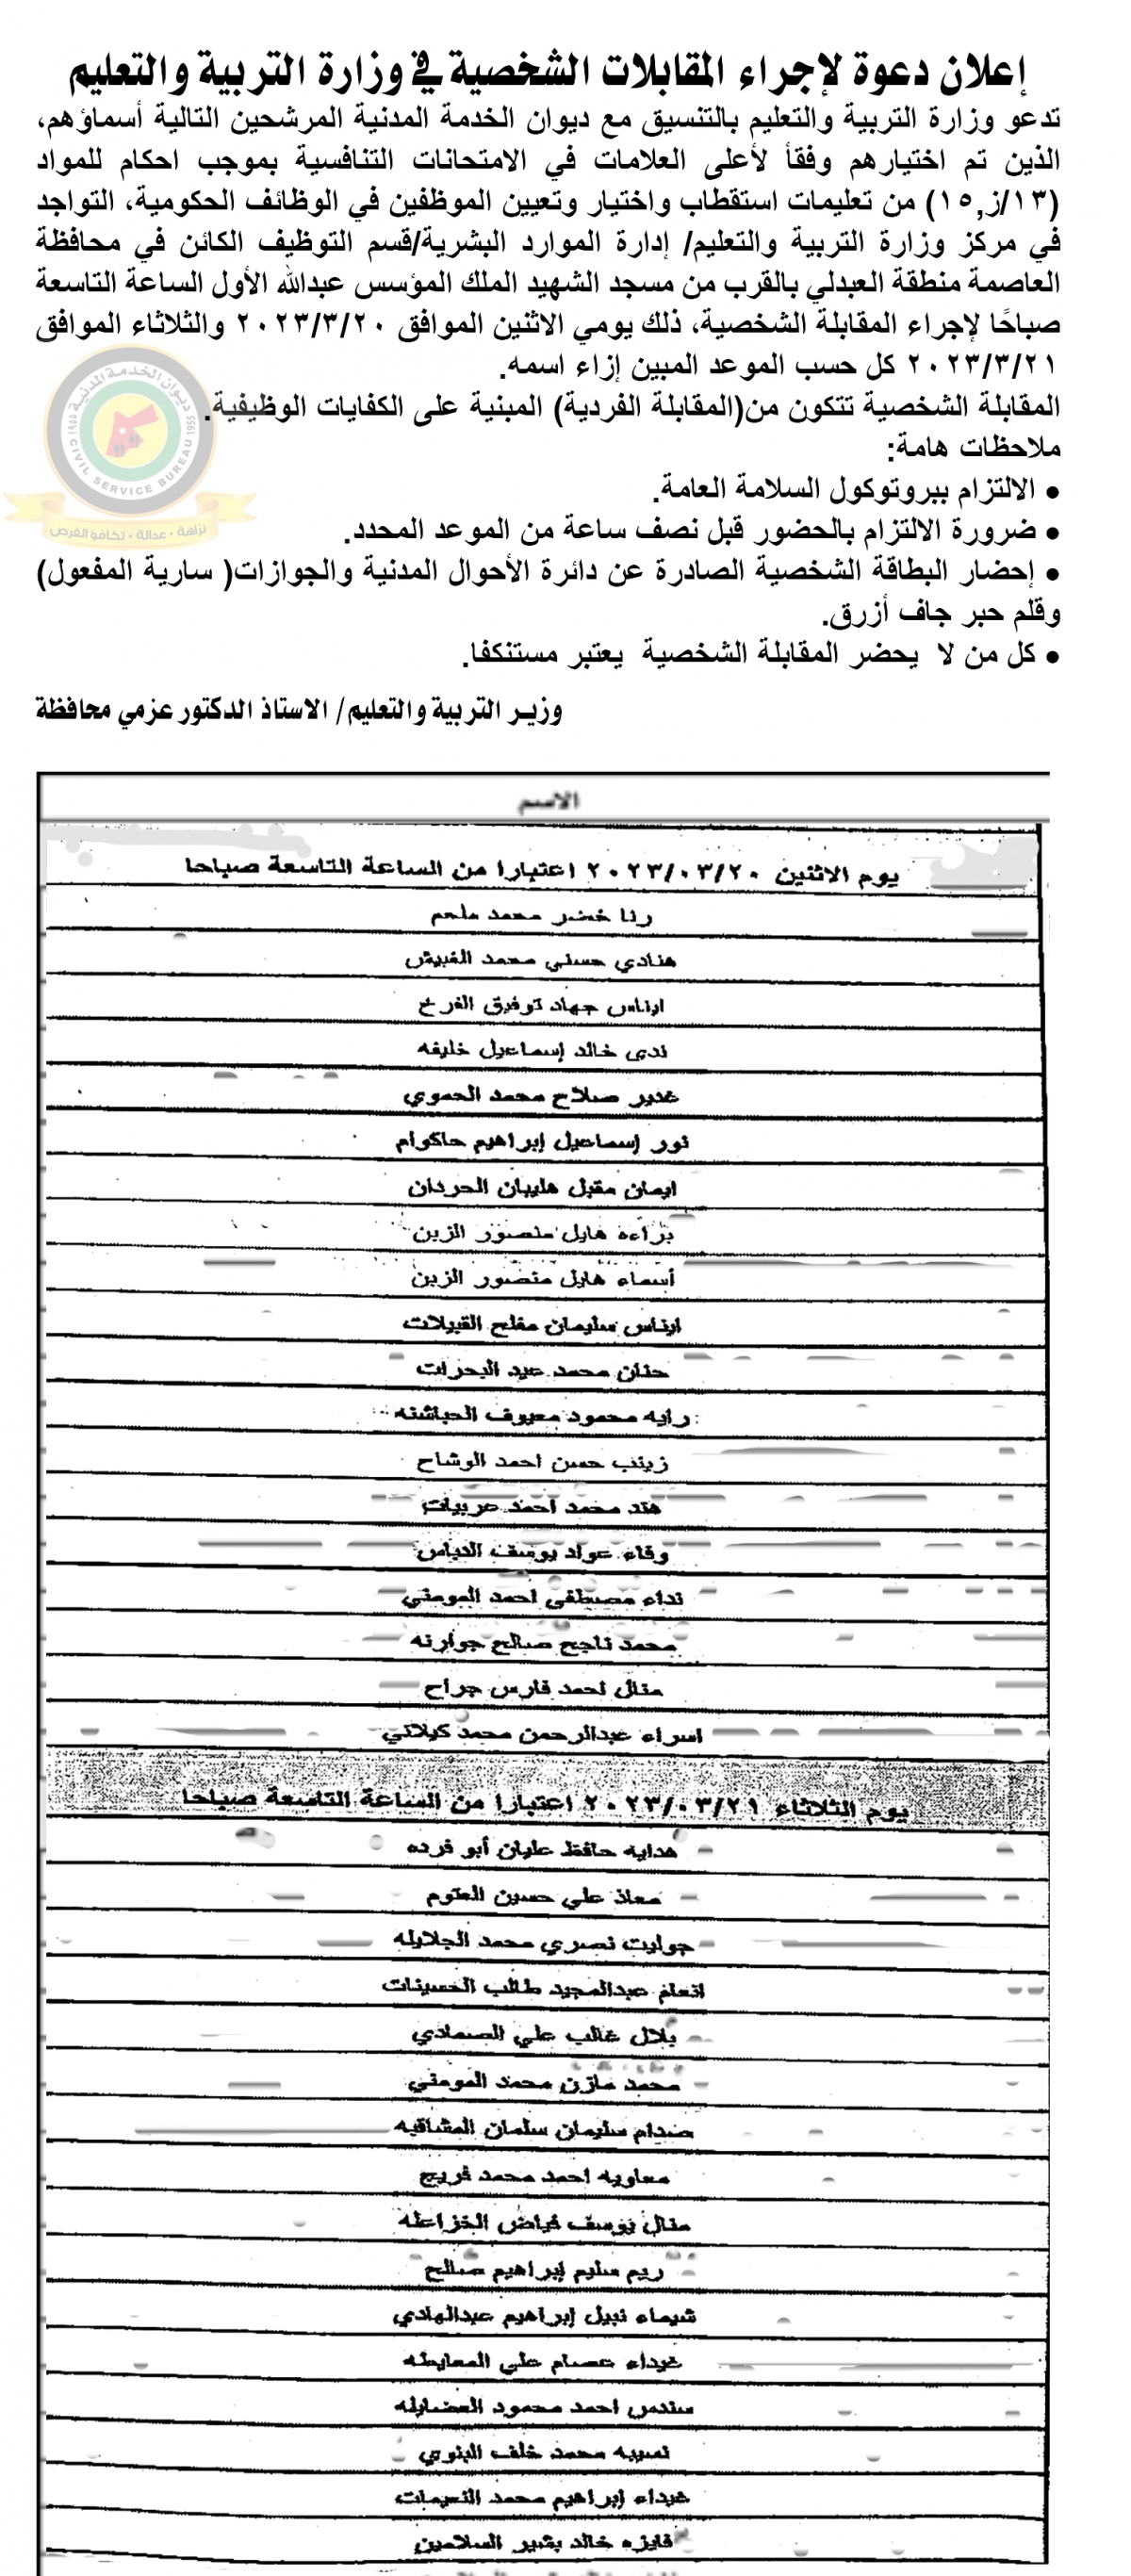 إعلان دعوة لإجراء المقابلات الشخصية في وزارة التربية والتعليم
تدعو وزارة التربية والتعليم بالتنسيق مع ديوان الخدمة المدنية المرشحين التالية أسماؤهم،
الذين تم اختيارهم وفقاً لأعلى العلامات في الامتحانات التنافسية بموجب احكام للمواد
(١٣/ز,١٥) من تعليمات استقطاب واختيار وتعيين الموظفين في الوظائف الحكومية، التواجد
في مركز وزارة التربية والتعليم/ إدارة الموارد البشرية/قسم التوظيف الكائن في محافظة
العاصمة منطقة العبدلي بالقرب من مسجد الشهيد الملك المؤسس عبدالله الأول الساعة التاسعة
صباحًا لإجراء المقابلة الشخصية، ذلك يومي الاثنين الموافق ٢٠٢٣/٣/٢٠ والثلاثاء الموافق
٢٠٢٣/٣/٢١ كل حسب الموعد المبين إزاء اسمه.
المقابلة الشخصية تتكون من(المقابلة الفردية) المبنية على الكفايات الوظيفية.
ملاحظات هامة:
• الالتزام ببروتوكول السلامة العامة.
• ضرورة الالتزام بالحضور قبل نصف ساعة من الموعد المحدد.
• إحضار البطاقة الشخصية الصادرة عن دائرة الأحوال المدنية والجوازات( سارية المفعول)
وقلم حبر جاف أزرق.
• كل من لا يحضر المقابلة الشخصية يعتبر مستنكفا.
ديوان الخدمة المدنية
١٩٥٥ CIVIL SERVICE BUREAU 1955
نزاهة • عدالة • تكافؤ الفرص
وزير التربية والتعليم/ الاستاذ الدكتور عزمي محافظة
الاسم
يوم الاثنين ٢٠٢٣/٠٣/٢٠ اعتبارا من الساعة التاسعة صباحا
رنا خضر محمد ملحم
هنادي حسني محمد الغبيش
ايناس جهاد توفيق الفرخ
ندى خالد إسماعيل خليفه
غدير صلاح محمد الحموي
نور إسماعيل إبراهيم حاكوام
ايمان مقبل هليبان الحردان
براءه هايل منصور الزبن
أسماء هايل منصور الزبن
ايناس سليمان مفلح القبيلات
حنان محمد عبد البحرات
رايه محمود معيوف الحباشنه
زينب حسن احمد الوشاح
هند محمد احمد عربيات
وفاء عواد يوسف الدباس
نداء مصطفى احمد المومني
محمد ناجح صالح جوارنه
منال احمد فارس جراح
اسراء عبدالرحمن محمد كيلاني
يوم الثلاثاء ٢٠٢٣/٠٣/٢١ اعتبارا من الساعة التاسعة صباحا
هدايه حافظ عليان أبو قرده
معاذ علي حسين العتوم
جوليت نصري محمد الجلايله
انعام عبدالمجيد طالب الحسينات
بلال غالب علي الصمادي
محمد مازن محمد المومني
صدام سليمان سلمان المشاقبه
معاويه احمد محمد فريج
منال يوسف فياض الخزاعله
ريم سليم إبراهيم صالح
شيماء نبيل إبراهيم عبدالهادي
غيداء عصام علي المعايطه
سندس احمد محمود العضايله
نسيبه محمد خلف البنوي
غيداء إبراهيم محمد النعيمات
فايزه خالد بشير السلامين